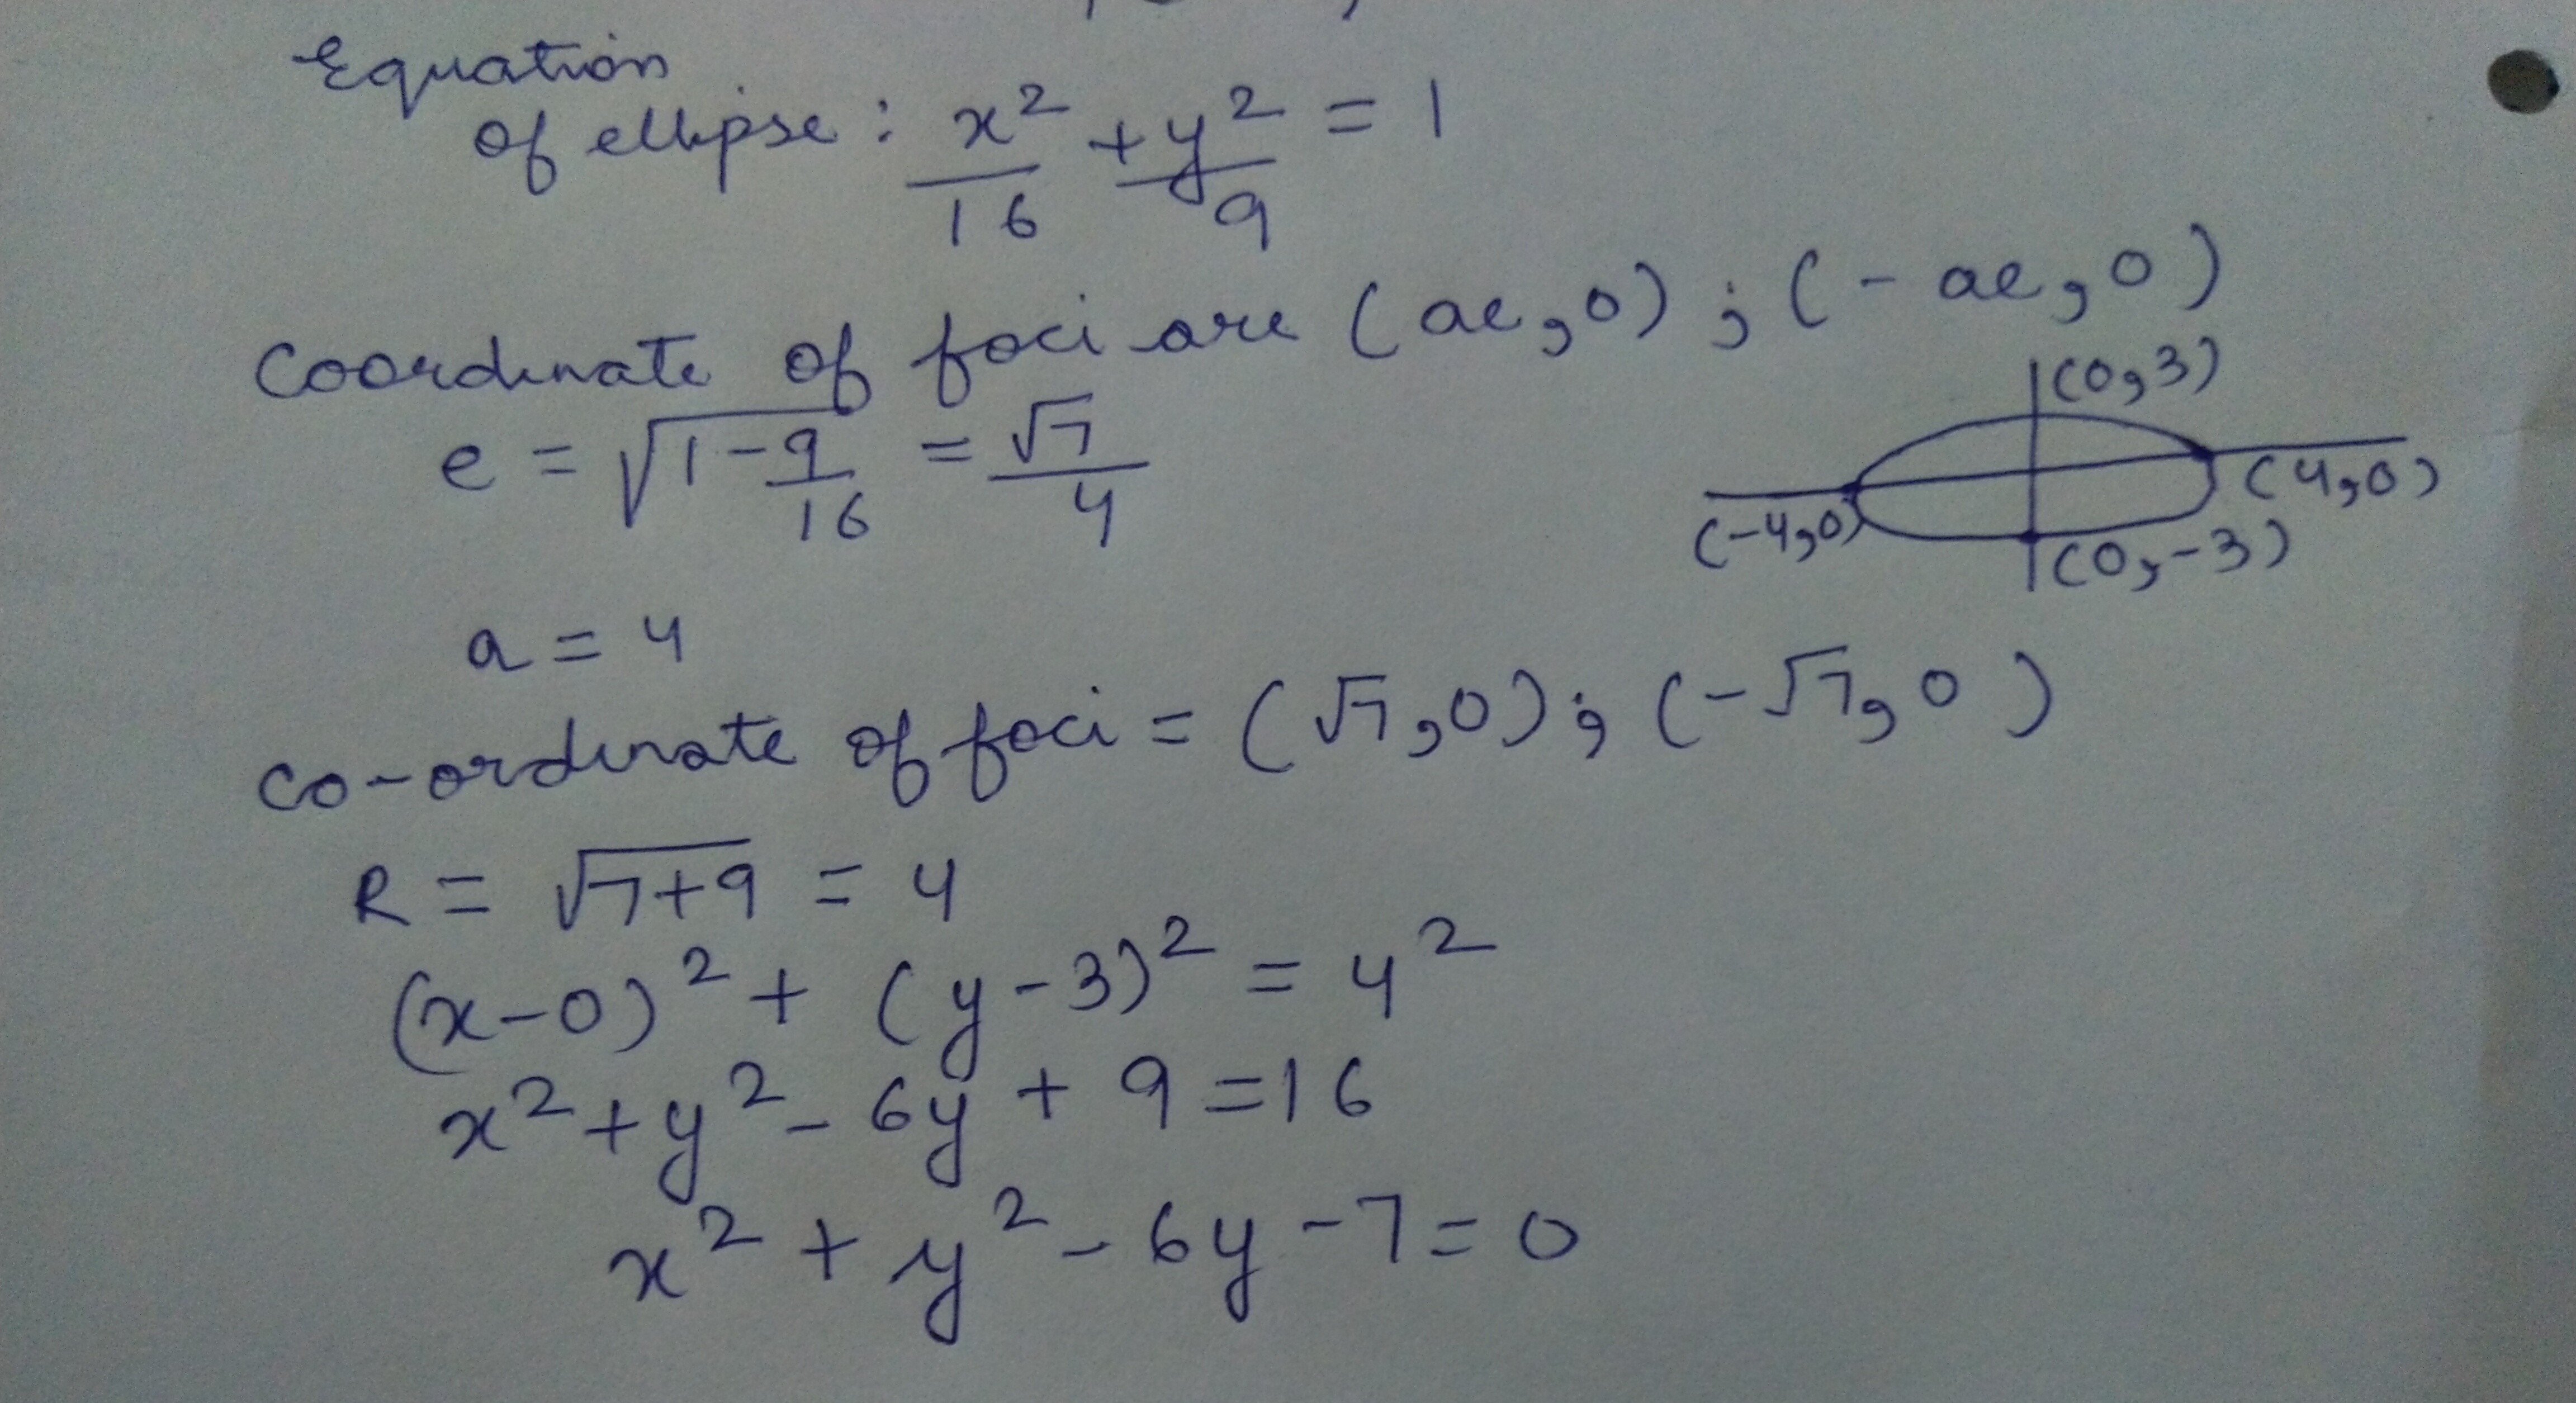 Equation
of ellipse: x²/16 + y²/9 = 1
Coordinate of foci are (ae,0); (-ae,0)
e = √(1-9/16) = √7/4
(0,3)
(4,0)
(-4,0)
(0,-3)
a = 4
Co-ordinate of foci = (√7,0); (-√7,0)
R = √(7+9) = 4
(x-0)² + (y-3)² = 4²
x² + y² - 6y + 9 = 16
x² + y² - 6y - 7 = 0